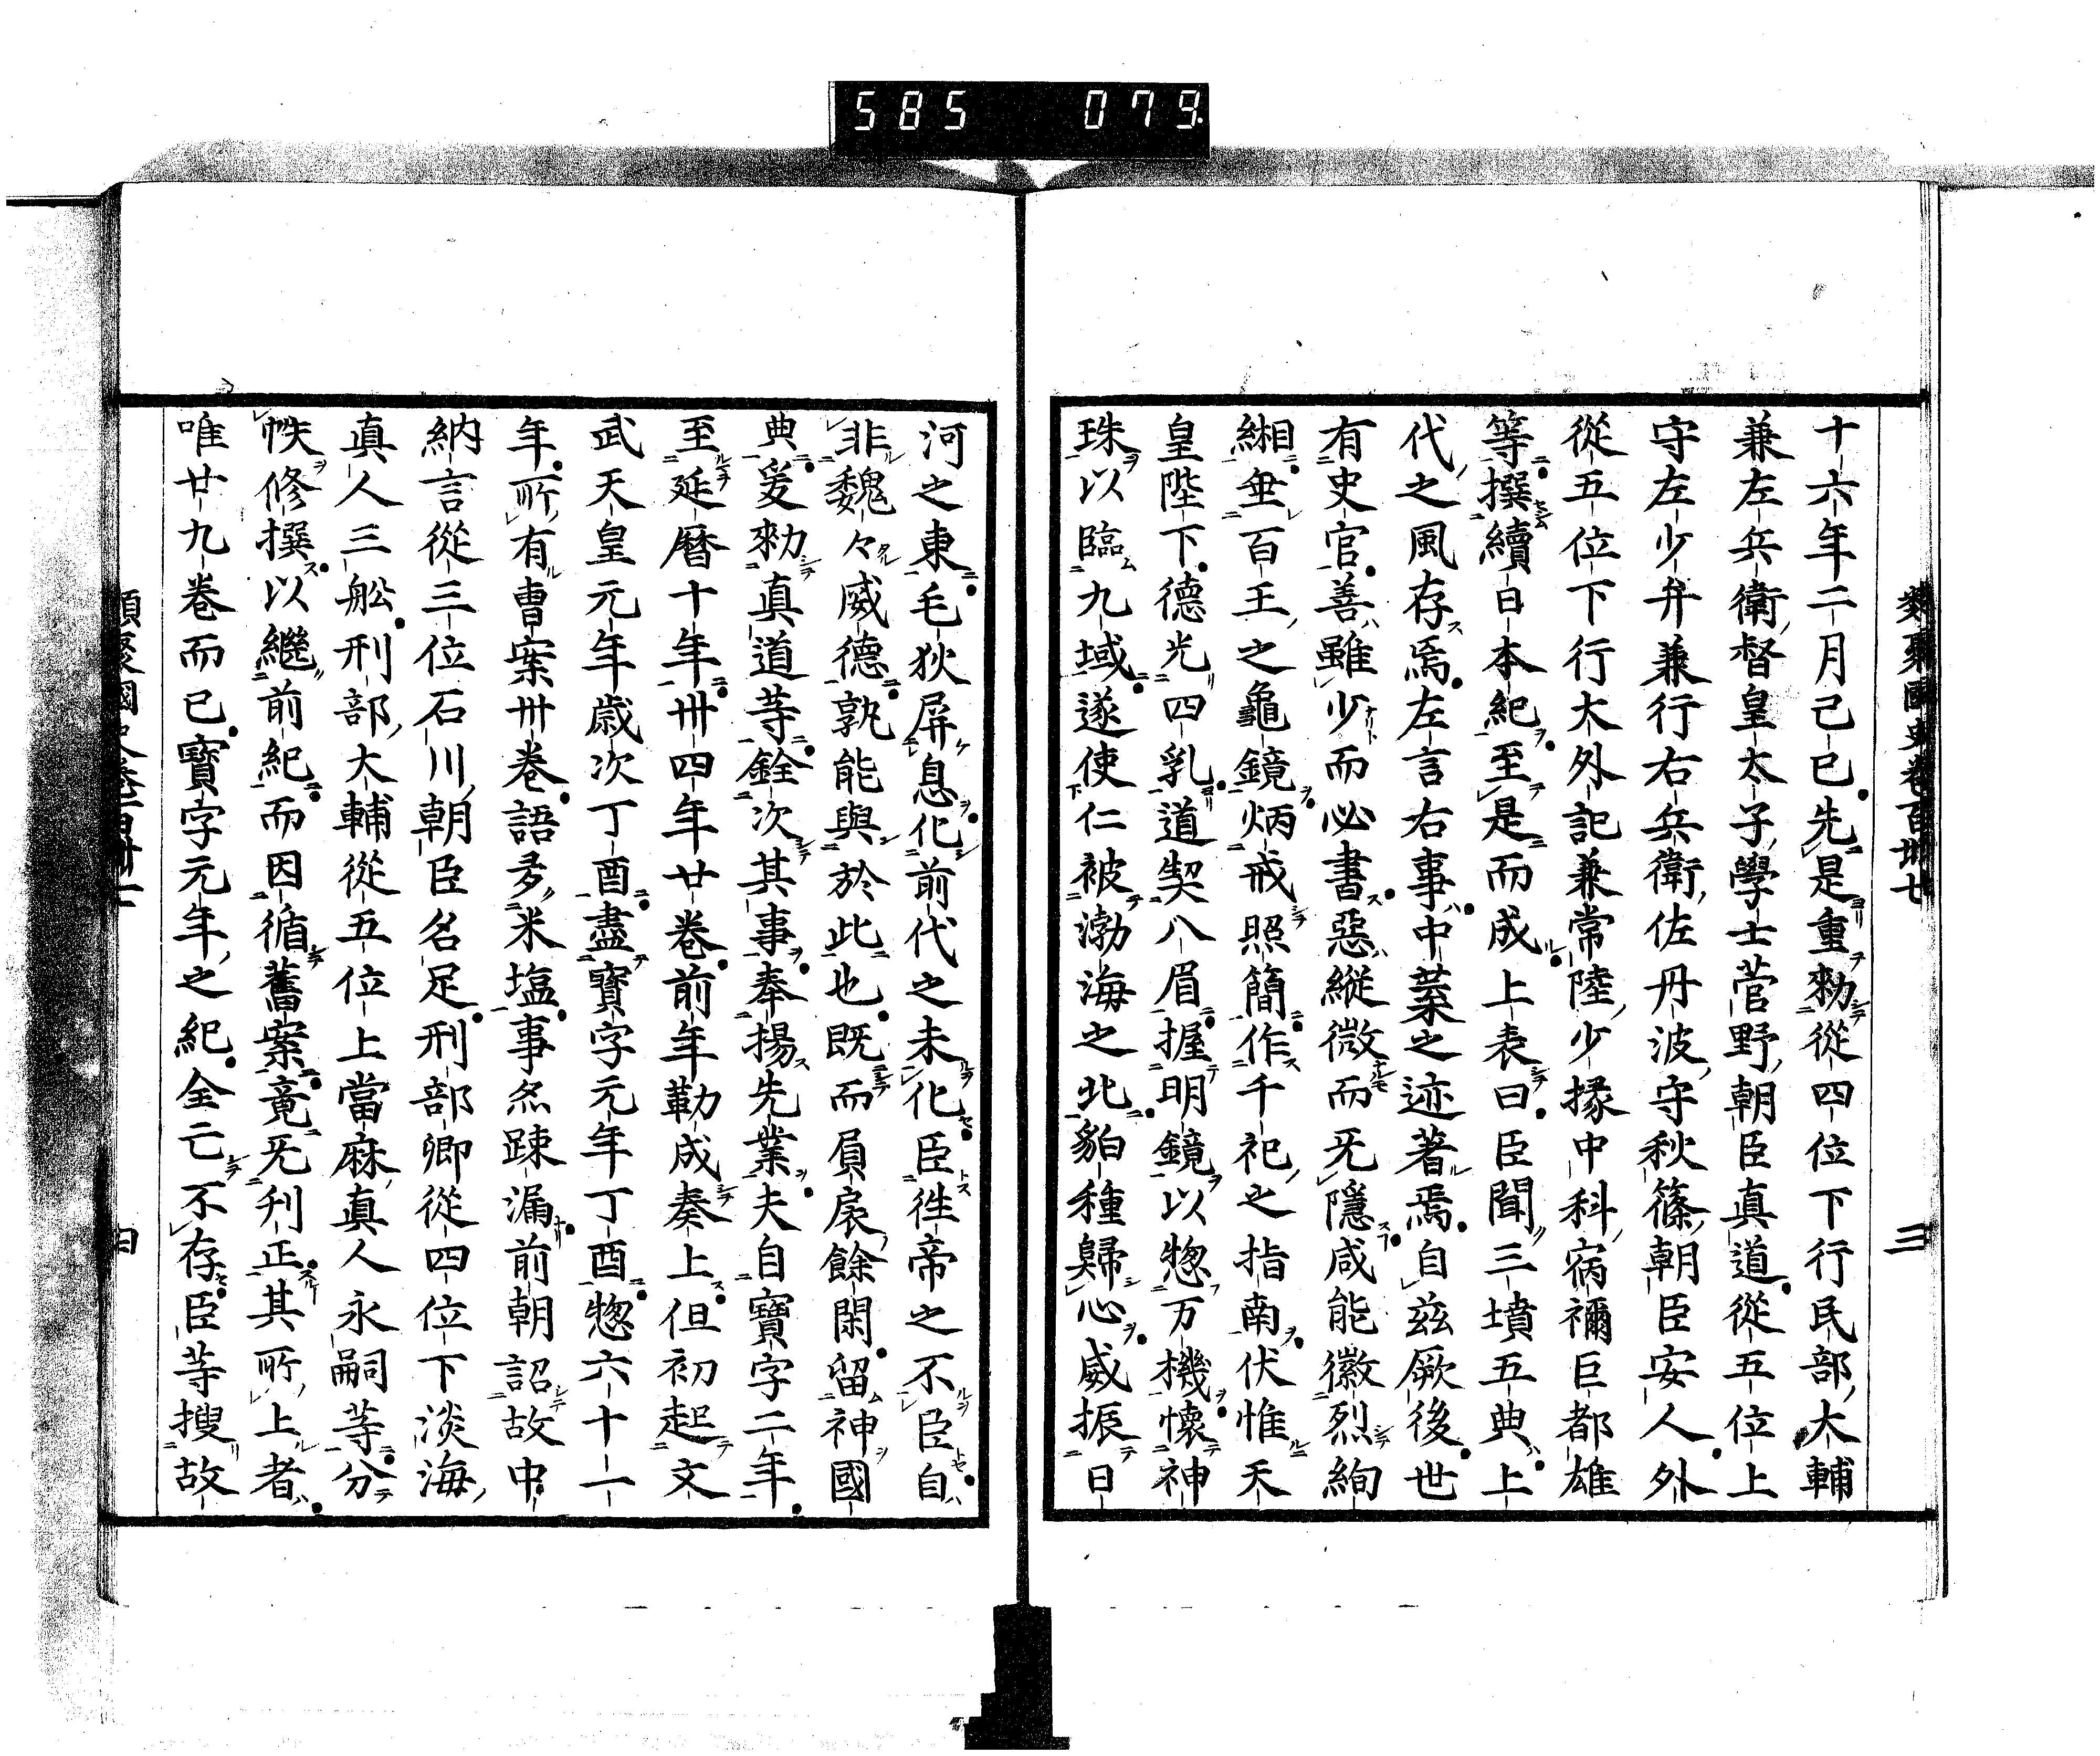 585 079
類聚國史卷百卌七 三
十六年二月己巳先是重勑從四位下行民部大輔
兼左兵衛督皇太子學士菅野朝臣真道從五位上
守左少弁兼行右兵衛佐丹波守秋篠朝臣安人外
從五位下行大外記兼常陸少掾中科宿禰巨都雄
等撰續日本紀至是而成上表曰臣聞三墳五典上
代之風存焉左言右事中葉之迹著焉自茲厥後世
有史官善雖少而必書惡縱微而无隱咸能徽烈絢
緗垂百王之龜鏡炳戒照簡作千祀之指南伏惟天
皇陛下德光四乳道契八眉握明鏡以惣万機懷神
珠以臨九域遂使仁被渤海之北貊種歸心威振日
河之東毛狄屏息化前代之未化臣徃帝之不臣自
非魏々威德孰能與於此也既而屓扆餘閑留神國
典爰勑真道等銓次其事奉揚先業夫自寶字二年
至延曆十年卅四年廿卷前年勒成奏上但初起文
武天皇元年歲次丁酉盡寶字元年丁酉惣六十一
年所有曹案卅卷語多米塩事亦踈漏前朝詔故中
納言從三位石川朝臣名足刑部卿從四位下淡海
真人三船刑部大輔從五位上當麻真人永嗣等分
帙修撰以繼前紀而因循舊案竟无刊正其所上者
唯廿九卷而已寶字元年之紀全亡不存臣等搜故
類聚國史卷百卌七 四